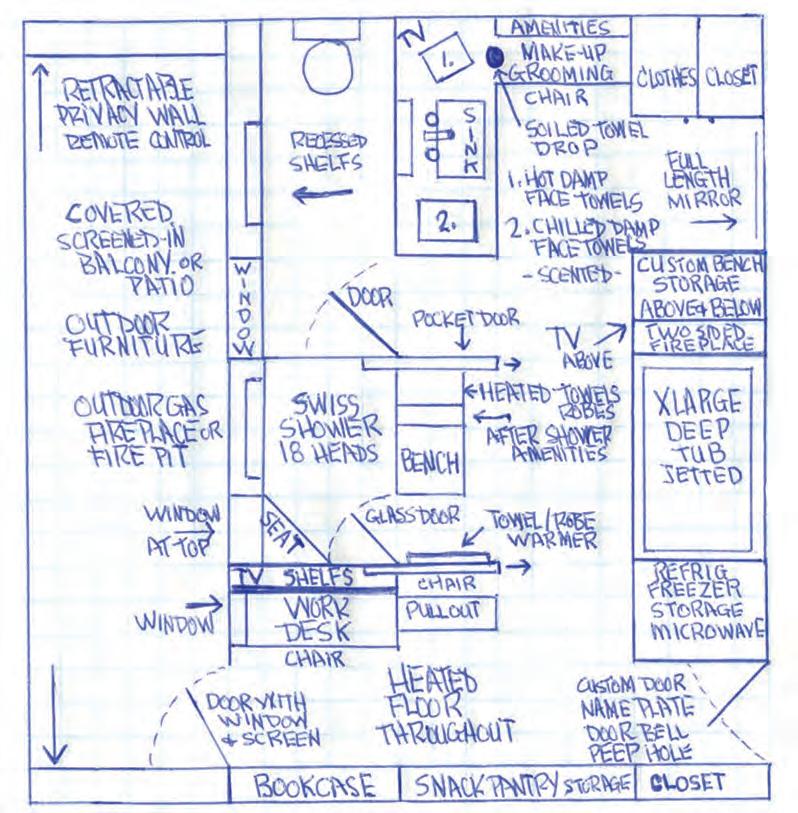 AMENITIES
TV
1.
MAKE-UP
GROOMING
CHAIR
CLOTHES CLOSET
SOILED TOWEL
DROP
RETRACTABLE
PRIVACY WALL
REMOTE CONTROL
RECESSED
SHELFS
SINK
1. HOT DAMP
FACE TOWELS
2. CHILLED DAMP
FACE TOWELS
-SCENTED-
2.
FULL
LENGTH
MIRROR
COVERED
SCREENED-IN
BALCONY OR
PATIO
OUTDOOR
FURNITURE
WINDOW
DOOR
POCKET DOOR
CUSTOM BENCH
STORAGE
ABOVE & BELOW
TV
ABOVE
TWO SIDED
FIREPLACE
OUTDOOR GAS
FIREPLACE OR
FIRE PIT
SWISS
SHOWER
18 HEADS
HEATED TOWELS
ROBES
AFTER SHOWER
AMENITIES
BENCH
XLARGE
DEEP
TUB
JETTED
WINDOW
AT TOP
SEAT
GLASS DOOR
TOWEL/ROBE
WARMER
TV SHELFS
CHAIR
PULLOUT
REFRIG
FREEZER
STORAGE
MICROWAVE
WINDOW
WORK
DESK
CHAIR
DOOR WITH
WINDOW
& SCREEN
HEATED
FLOOR
THROUGHOUT
CUSTOM DOOR
NAME PLATE
DOOR BELL
PEEP HOLE
BOOKCASE
SNACK PANTRY STORAGE
CLOSET